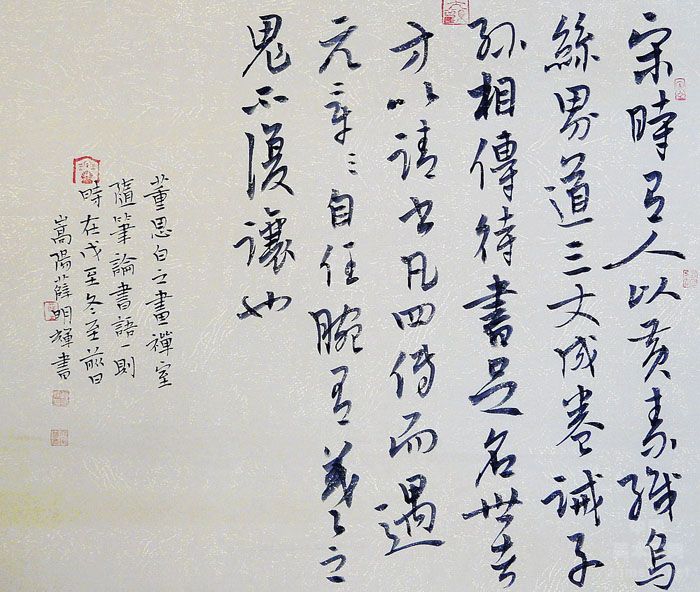 宋時有人以黃素織烏
絲界道三丈成卷誡子
孫相傳待書足名世者
方以請書凡四傳而遇
元章〻〻自任腕有羲之
鬼不復讓也
董思白之畫禪室
隨筆論書語一則
時在戊至冬至前日
嵩陽薛明輝書